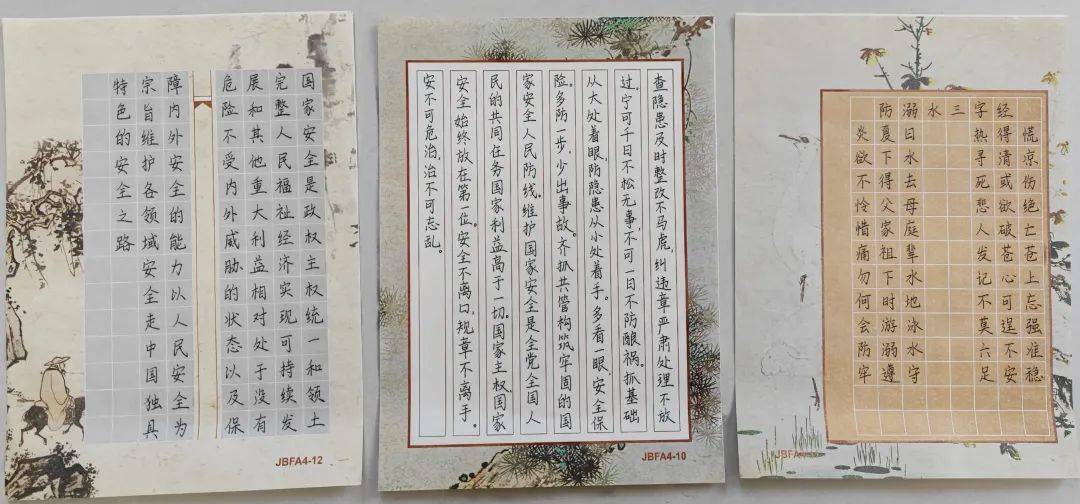 国家安全是政权主权统一和领土
完整人民福祉经济实现可持续发
展和其他重大利益相对处于没有
危险不受内外威胁的状态以及保
障内外安全的能力以人民安全为
宗旨维护各领域安全走中国独具
特色的安全之路
JBFA4-12
查隐患及时整改不马虎,纠违章严肃处理不放
过。宁可千日不松无事,不可一日不防酿祸。抓基础
从大处着眼,防隐患从小处着手。多看一眼,安全保
险。多防一步,少出事故。齐抓共管构筑牢固的国
家安全人民防线。维护国家安全是全党全国人
民的共同任务国家利益高于一切。国家主权国家
安全始终放在第一位。安全不离口,规章不离手。
安不可危治,治不可忘乱。
JBFA4-10
防溺水三字经
炎夏日 热得慌
欲下水 寻清凉
不得去 死或伤
怜父母 悲欲绝
惜家庭 人破亡
痛祖辈 发苍苍
勿下水 记心上
何时地 不可忘
会游泳 莫逞强
防溺水 六不准
牢遵守 足安稳